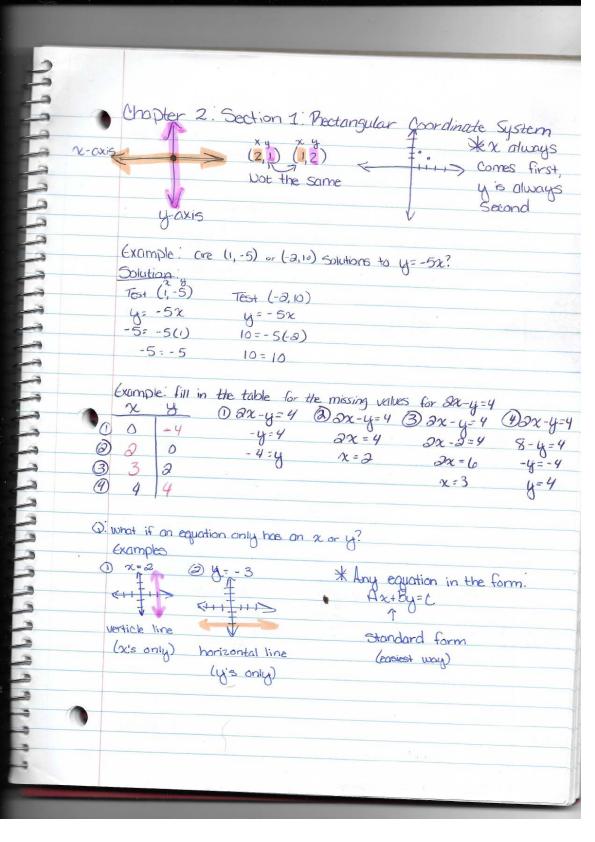 Chapter 2: Section 1: Rectangular Coordinate System
x-axis
y-axis
x y x y
(2,1) (1,2)
Not the same
* x always
comes first,
y is always
second
Example: are (1,-5) or (-2,10) solutions to y=-5x?
Solution:
x y
Test (1,-5) Test (-2,10)
y= -5x y= -5x
-5= -5(1) 10= -5(-2)
-5=-5 10=10
Example: fill in the table for the missing values for 2x-y=4
x y
① 0 -4
② 2 0
③ 3 2
④ 4 4
① 2x-y=4
-y=4
-4=y
② 2x-y=4
2x=4
x=2
③ 2x-y=4
2x-2=4
2x=6
x=3
④ 2x-y=4
8-y=4
-y=-4
y=4
Q: what if an equation only has an x or y?
Examples
① x=2
verticle line
(x's only)
② y= -3
horizontal line
(y's only)
* Any equation in the form:
Ax+By=C
↑
Standard form
(easiest way)